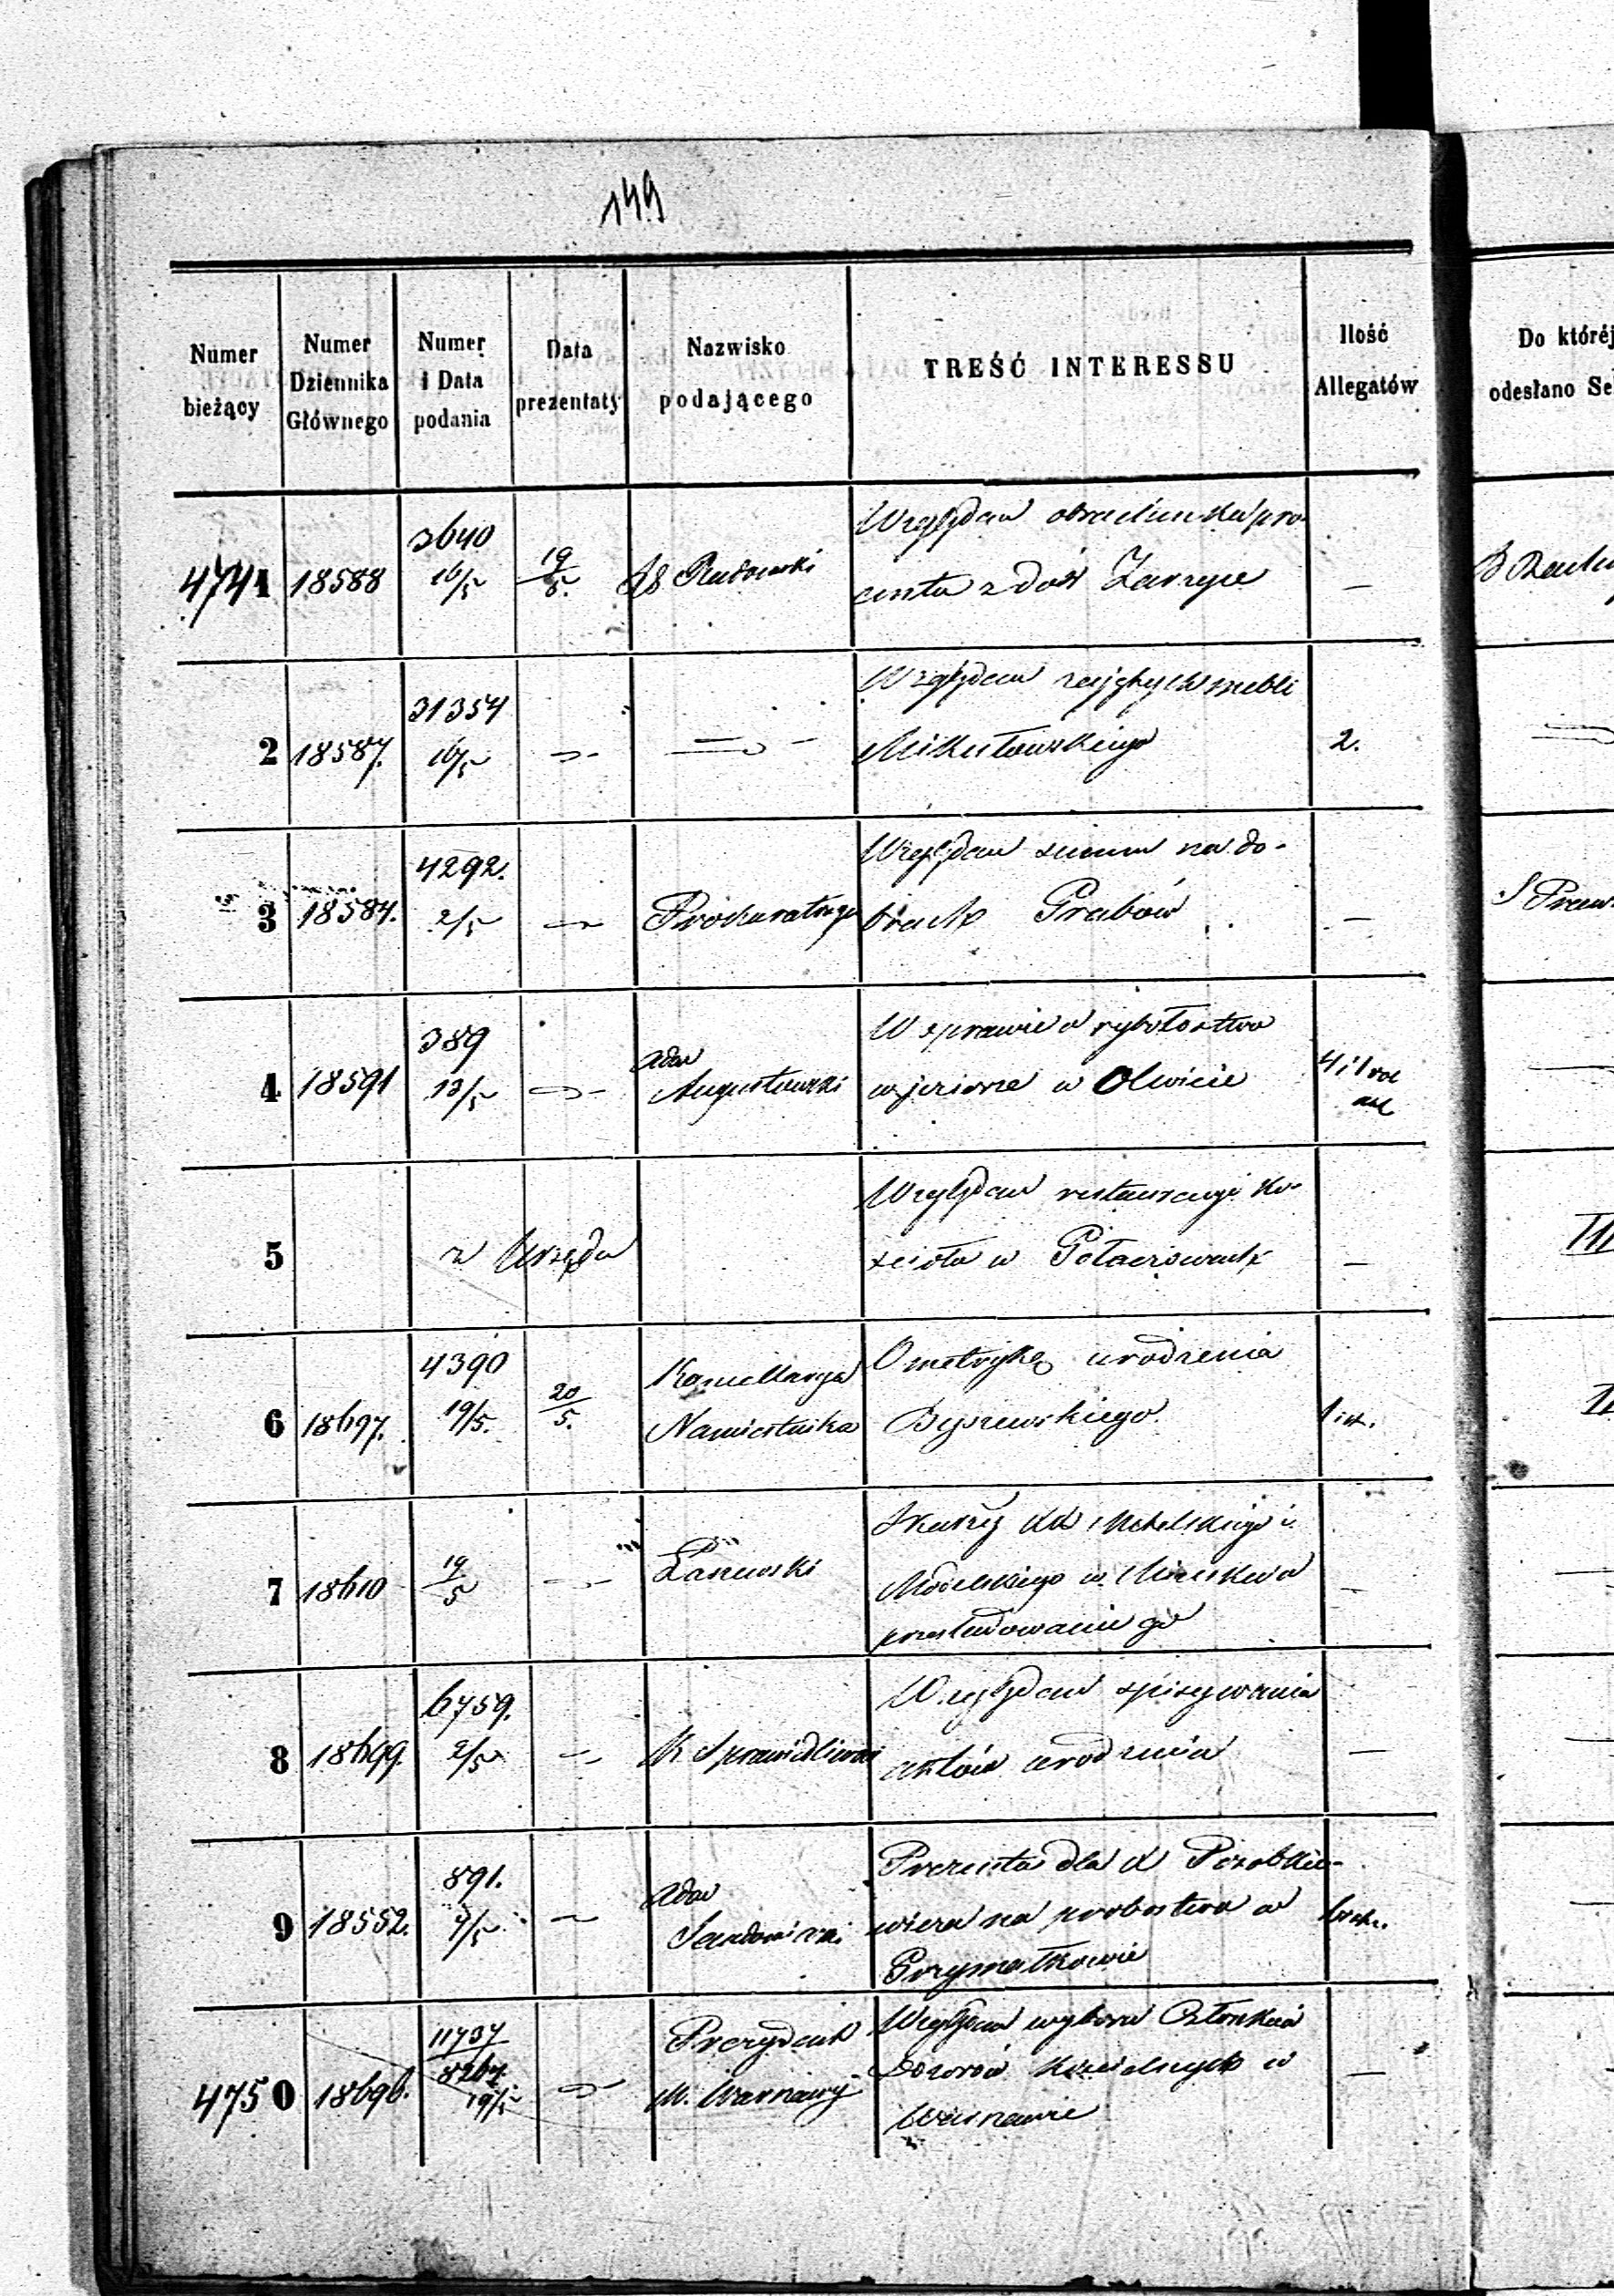 149
Numer bieżący
Numer Dziennika Głównego
Numer i Data podania
Data prezentaty
Nazwisko podającego
TREŚĆ INTERESSU
Ilość Allegatów
Do której
odesłano Se
4741 18588 3640 16/5 19/5 Radowski
Względem obrachunku pro-
centu z dóbr Zarzyce —
2 18587. 31354 16/5
Względem zajętych mebli
Mikułowskiego 2.
3 18584. 4292. 2/5 Prokuratorya
Względem summ na do-
brach Grabów —
4 18591 389 13/5 Adm Augustowski
W sprawie o rybołostwo
w jeziorze w Olwicie 4 i 1 vol
5 z Urzędu
Względem restauracyi ko-
ścioła w —
6 18697. 4390 19/5. 20/5. Kancellarya Namiestnika
O metrykę urodzenia
Byszewskiego
7 18610 19/5 Łaszewski
Skarży XX i
Modelskiego w o
prześladowanie go
8 18699. 6759. 2/5 K Sprawiedliwości
Względem spisywania
aktów urodzenia —
9 18552. 891. 7/5 Adm Sandomirski
Prezenta dla X
wicza na probostwo w
4750 18696. 11737 8267. 19/5 Prezydent M. Warszawy
Względem wyboru Członków
Dozorów Kościelnych w
Warszawie —